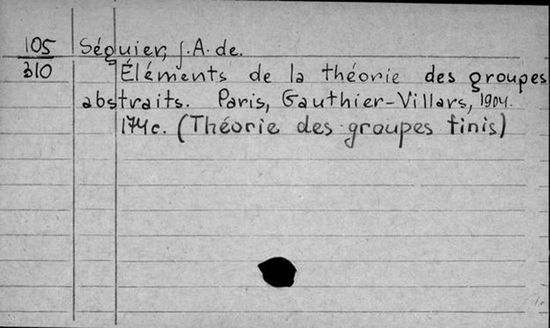 105 Séguier, J. A. de.
310 Éléments de la théorie des groupes
abstraits. Paris, Gauthier-Villars, 1904.
174c. (Théorie des groupes finis)